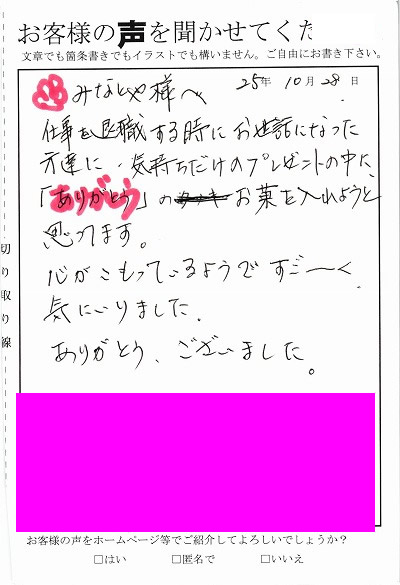 お客様の声を聞かせてくた
文章でも箇条書きでもイラストでも構いません。ご自由にお書き下さい。
25年 10月 28日
みなとや様へ
仕事を退職する時にお世話になった
方達に、気持ちだけのプレゼントの中に、
「ありがとう」の お菓を入れようと
思ってます。
心がこもっているようです すご〜く
気にいりました。
ありがとう、ございました。
切り取り線
お客様の声をホームページ等でご紹介してよろしいでしょうか?
□はい □匿名で □いいえ